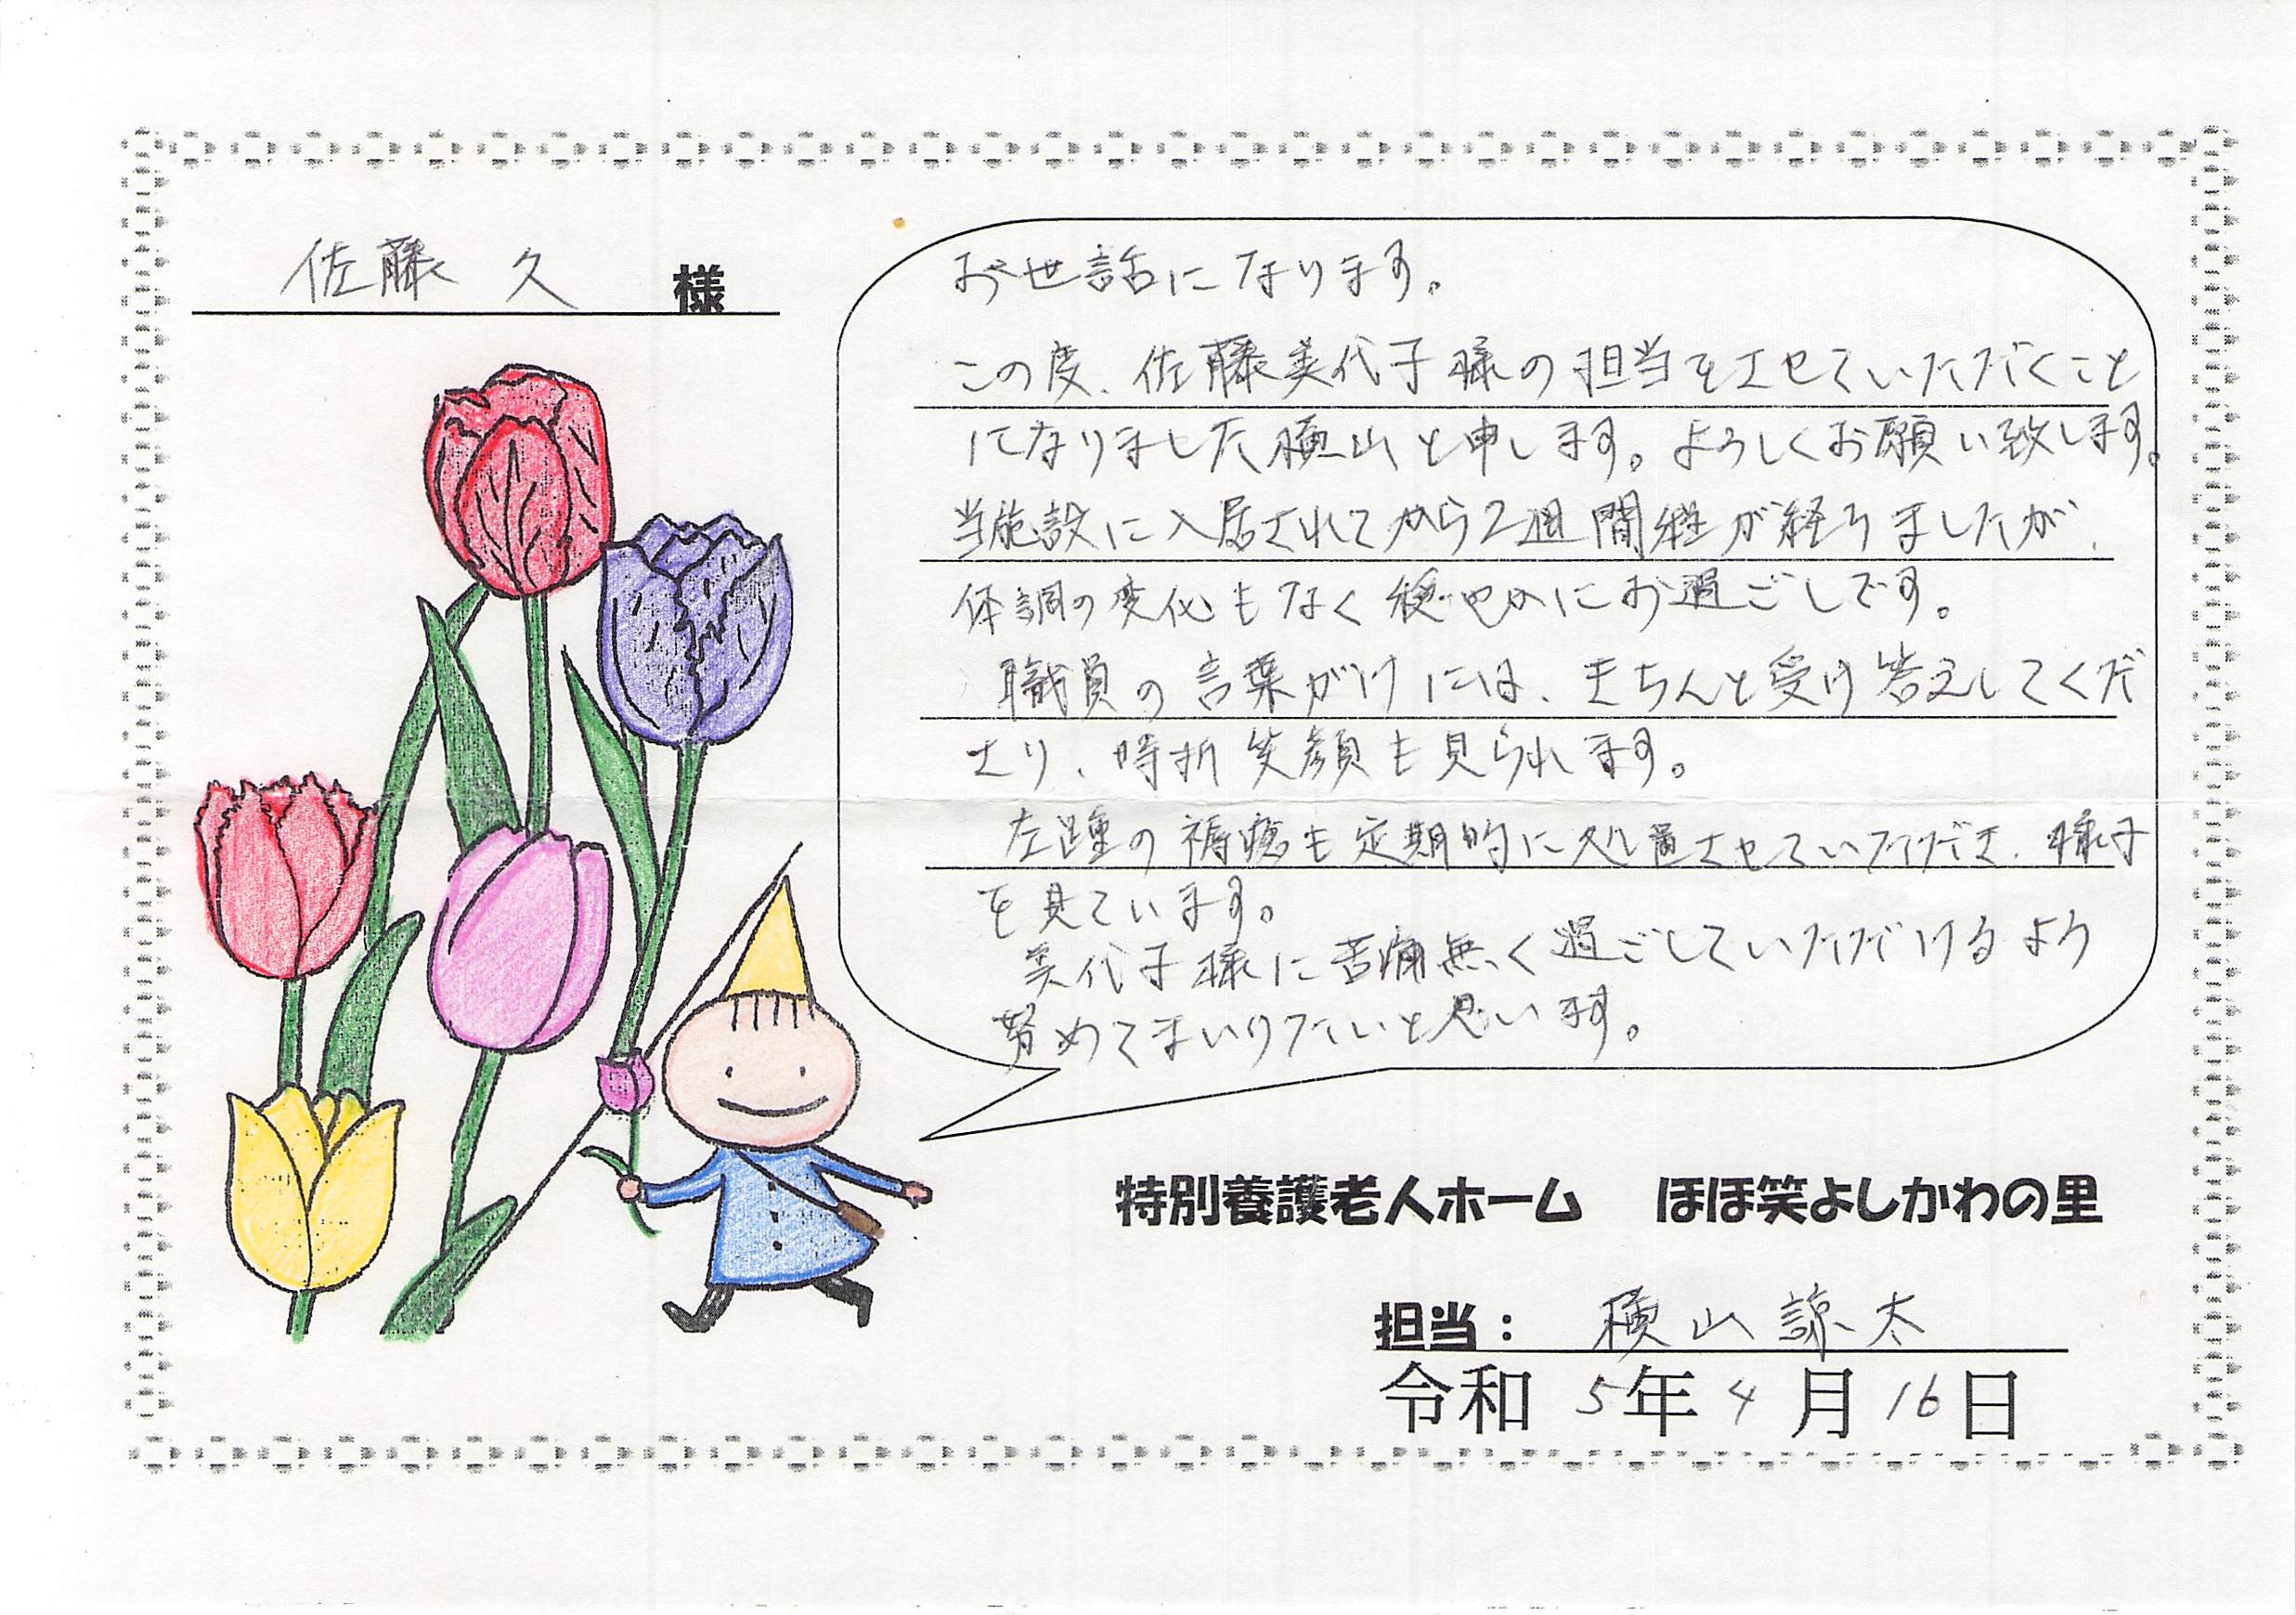 佐藤 久 様
お世話になります。
この度、佐藤美代子様の担当をさせていただくこと
になりました横山と申します。よろしくお願い致します。
当施設に入居されてから2週間程が経ちましたが、
体調の変化もなく穏やかにお過ごしです。
職員の言葉がけには、きちんと受け答えしてくだ
さり、時折笑顔も見られます。
左踵の褥瘡も定期的に処置させていただき、様子
を見ています。
美代子様に苦痛無く過ごしていただけるよう
努めてまいりたいと思います。
特別養護老人ホーム ほほ笑よしかわの里
担当: 横山諒太
令和 5年 4月 16日